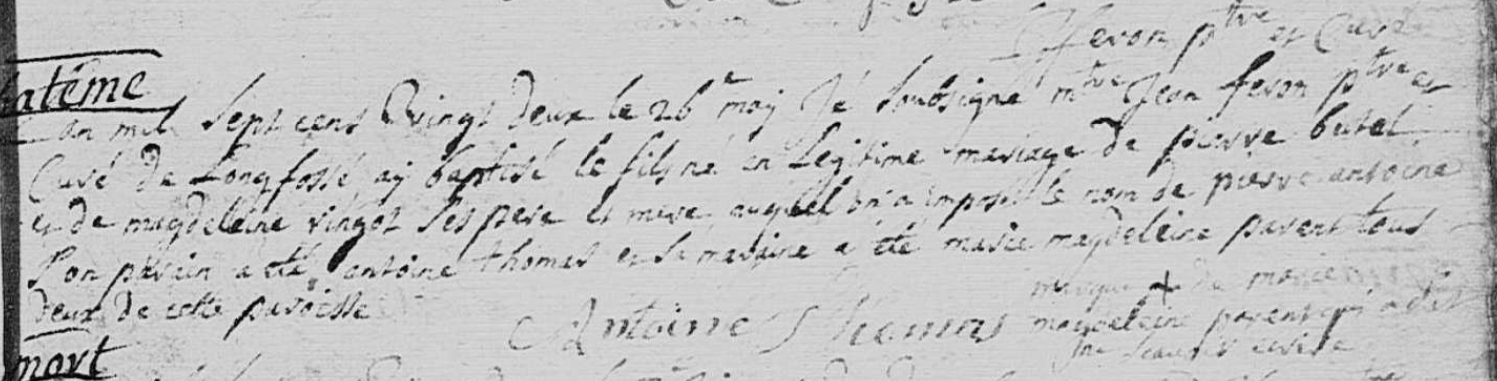 feron ptre et Curé
Batême
L'an mil sept cens vingt deux le 26e may Je soubsigné mtre Jean feron ptre et
Curé de Longfossé ay baptisé le fils né en Legitime mariage de pierre butel
et de magdeleine vingot ses pere et mere auquel on a imposé le nom de pierre antoine
Son parein a eté antoine thomas et sa maraine a été marie magdeleine parent tous
deux de cette paroisse
marque + de marie
Antoine Thomas magdeleine parent qui a dit
ne scavoir ecrire
mort